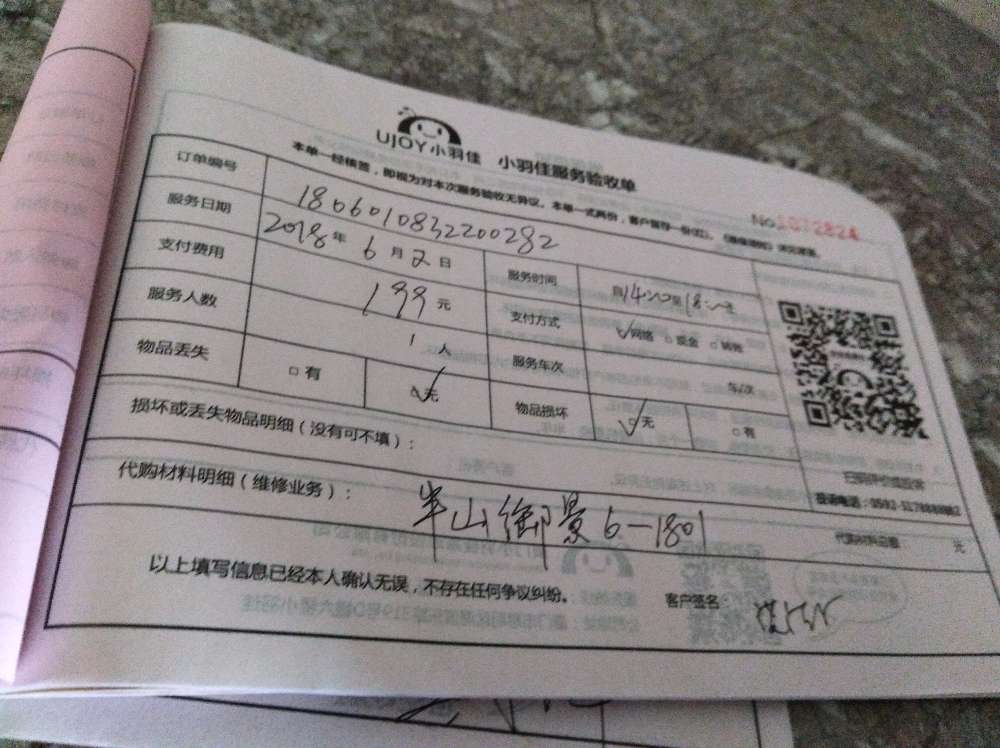 UJOY小羽佳 小羽佳服务验收单
No 1072824
本单一经核签，即视为对本次服务验收无异议。本单一式两份，客户留存一份
订单编号 180601083220028​2
服务日期 2018年6月2日 服务时间 自14:00至18:00
支付费用 199元 支付方式 网络 现金 转账
服务人数 1人 服务车次 车/次
物品丢失 有 无 物品损坏 无 有
损坏或丢失物品明细（没有可不填）：
代购材料明细（维修业务）： 半山御景6-1801
代购材料总额 元
以上填写信息已经本人确认无误，不存在任何争议纠纷。 客户签名：